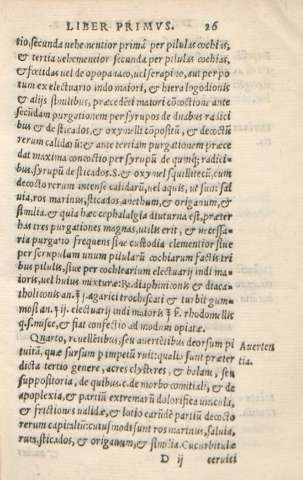 LIBER PRIMVS. 26
tio, secunda uehementior primâ per pilulas cochias,
& tertia uehementior secunda per pilulas cochias,
& fœtidas uel de opopanaco, uel serapino, aut per po
tum ex electuario indo maiori, & hiera logodionis
& alijs similibus, præcedēt maiori cōcoctione ante
secūdam purgationem per syrupos de duabus radici
bus & de sticados, & oxymelli cōpositū, & decoctū
rerum calidarū: & ante tertiam purgationem præce
dat maxima concoctio per syrupū de quinq; radici-
bus, syrupū de sticados. S. & oxymel squilleticū, cum
decocto rerum intense calidarū, uel aquis, ut sunt sal
uia, ros marinus, sticados, anethum, & origanum, &
similia. & quia hæc cephalalgia diuturna est, præter
has tres purgationes magnas, utilis erit, & necessa-
ria purgatio frequens siue custodia clementior siue
per scrupulum unum pilularū cochiarum factis tri
bus pilulis, siue per cochlearium electuarij indi ma-
ioris, uel huius mixturæ: ℞. diaphœniconis & diaca-
tholiconis an. ʒ j. agarici trochiscati & turbit gum
mosi an. ʒ ij. electuarij indi maioris ℥ ß. rhodomellis
q.s. misce, & fiat confectio ad modum opiatæ.
Quarto, reuellētibus, seu auertētibus deorsum pi
tuitā, quæ sursum p impetū ruit: qualis sunt præter
dicta tertio genere, acres clysteres, & balani, seu
suppositoria, de quibus c. de morbo comitiali, & de
apoplexia, & partiū extremarū dolorifica uincula,
& frictiones ualidæ, & lotio earūdē partiū decocto
rerum capitaliū: cutus modi sunt ros marinus, saluia,
ruta, sticados, & origanum, & similia. Cucurbitulæ
D ij ceruici
Auerten
tia.